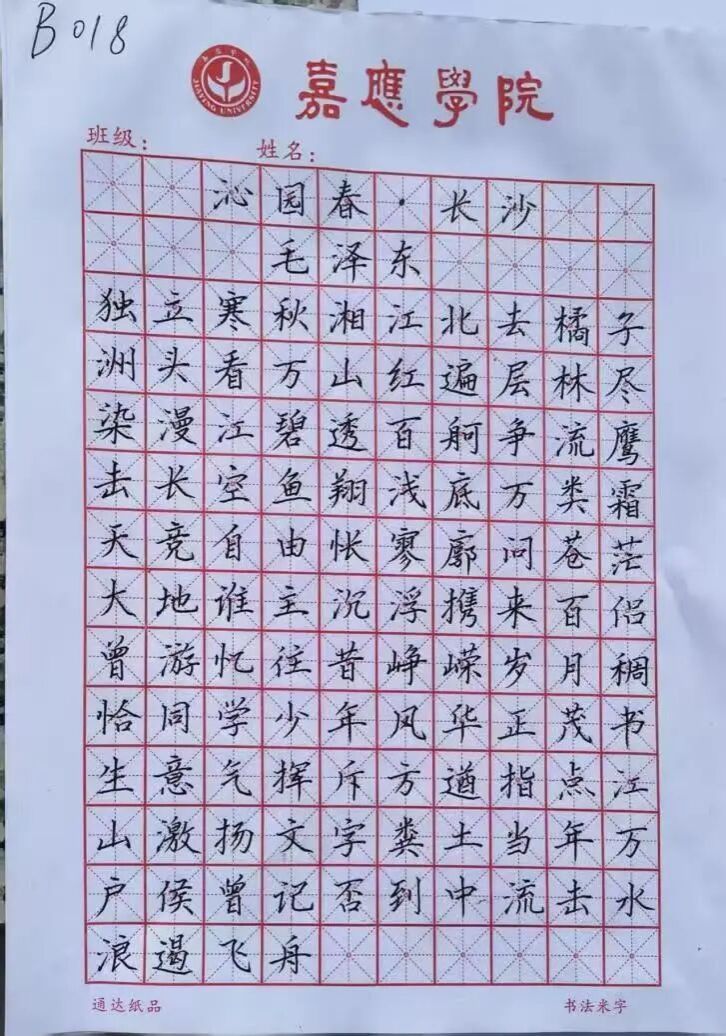 B018
嘉應學院
JIAYING UNIVERSITY
班级： 姓名：
沁园春·长沙
毛泽东
独立寒秋湘江北去橘子
洲头看万山红遍层林尽
染漫江碧透百舸争流鹰
击长空鱼翔浅底万类霜
天竞自由怅寥廓问苍茫
大地谁主沉浮携来百侣
曾游忆往昔峥嵘岁月稠
恰同学少年风华正茂书
生意气挥斥方遒指点江
山激扬文字粪土当年万
户侯曾记否到中流击水
浪遏飞舟
通达纸品 书法米字